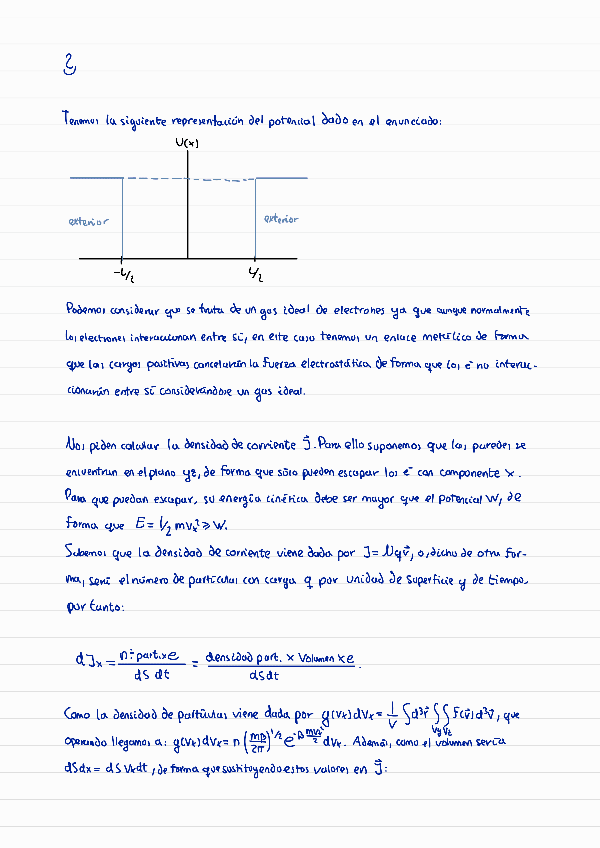 2
Tenemos la siguiente representación del potencial dado en el enunciado:
U(x)
exterior
exterior
-L/2
L/2
Podemos considerar que se trata de un gas ideal de electrones ya que aunque normalmente
los electrones interaccionan entre sí, en este caso tenemos un enlace metálico de forma
que las cargas positivas cancelarán la fuerza electrostática de forma que los e⁻ no interac-
cionarán entre sí considerándose un gas ideal.
Nos piden calcular la densidad de corriente J⃗. Para ello suponemos que las paredes se
encuentran en el plano yz, de forma que sólo pueden escapar los e⁻ con componente x.
Para que puedan escapar, su energía cinética debe ser mayor que el potencial W, de
forma que E = 1/2 mvₓ² ≥ W.
Sabemos que la densidad de corriente viene dada por J = Nqv⃗, o, dicho de otra for-
ma, será el número de partículas con carga q por unidad de superficie y de tiempo,
por tanto:
dJₓ = nº part. x e / dS dt = densidad part. x Volumen x e / dS dt .
Como la densidad de partículas viene dada por g(vₓ)dvₓ = 1/V ∫d³r⃗ ∫∫_{vy vz} f(v⃗)d³v⃗, que
operando llegamos a: g(vₓ)dvₓ = n (mβ/2π)^{1/2} e^{-β mvₓ²/2} dvₓ. Además, como el volumen sería
dSdx = dS vₓdt, de forma que sustituyendo estos valores en J⃗: